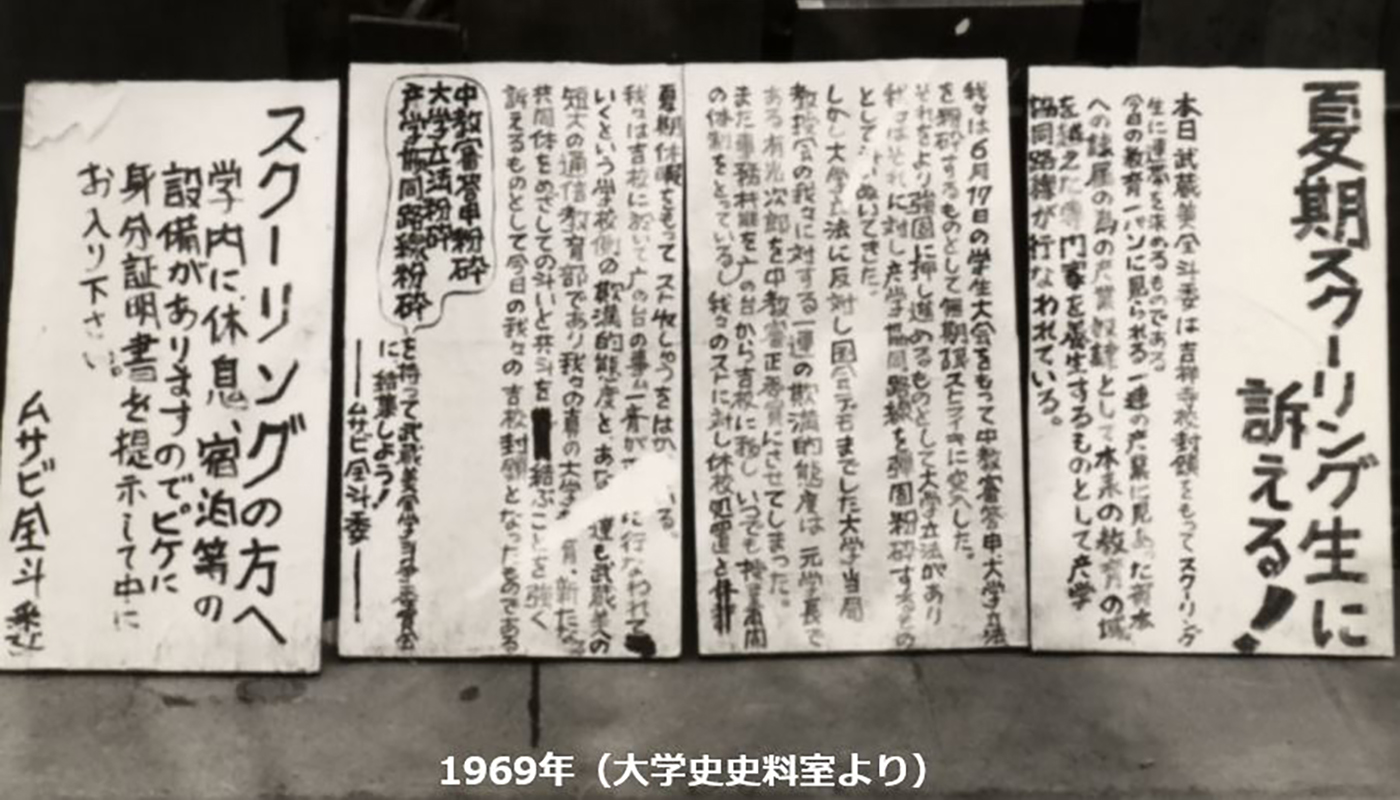 夏期スクーリング生に
訴える!
本日武蔵美全斗委は吉祥寺校封鎖をもってスクーリング
生に連帯を求めるものである
今日の教育一パンに見られる一連の産業に見あった資本
への隷属の為の産業奴隷として本来の教育の域
を越えた専門家を養生するものとして産学
協同路線が行なわれている。
我々は6月17日の学生大会をもって中教審答申・大学立法
を粉砕するものとして無期限ストライキに突入した。
それをより強固に押し進めるものとして大学立法があり
我々はそれに対し産学協同路線を強固粉砕するもの
として斗いぬいてきた。
しかし大学立法に反対し国会デモまでした大学当局
教授会の我々に対する一連の欺瞞的態度は元学長で
ある有光次郎を中教審正委員にさせてしまった。
また事務機能を广の台から吉校に移しいつでも授業再開
の体制をとっているし我々のストに対し休校処置と
夏期休暇をもってスト收しゅうをはか いる。
我々は吉校に於いて广の台の事ム一斉が に行なわれて
いくという学校側の欺瞞的態度と、あな 連も武蔵美の
短大の通信教育部であり我々の真の大学 育、新たな
共同体をめざしての斗いと共斗を 結ぶことを強く
訴えるものとして今日の我々の吉校封鎖となったものである
中教審答申粉砕
大学立法粉砕
産学協同路線粉砕
を持って武蔵美全学斗争委員会
に結集しよう!
――ムサビ全斗委――
スクーリングの方へ
学内に休息、宿泊等の
設備がありますのでピケに
身分証明書を提示して中に
お入り下さい。
ムサビ全斗委
1969年（大学史史料室より）